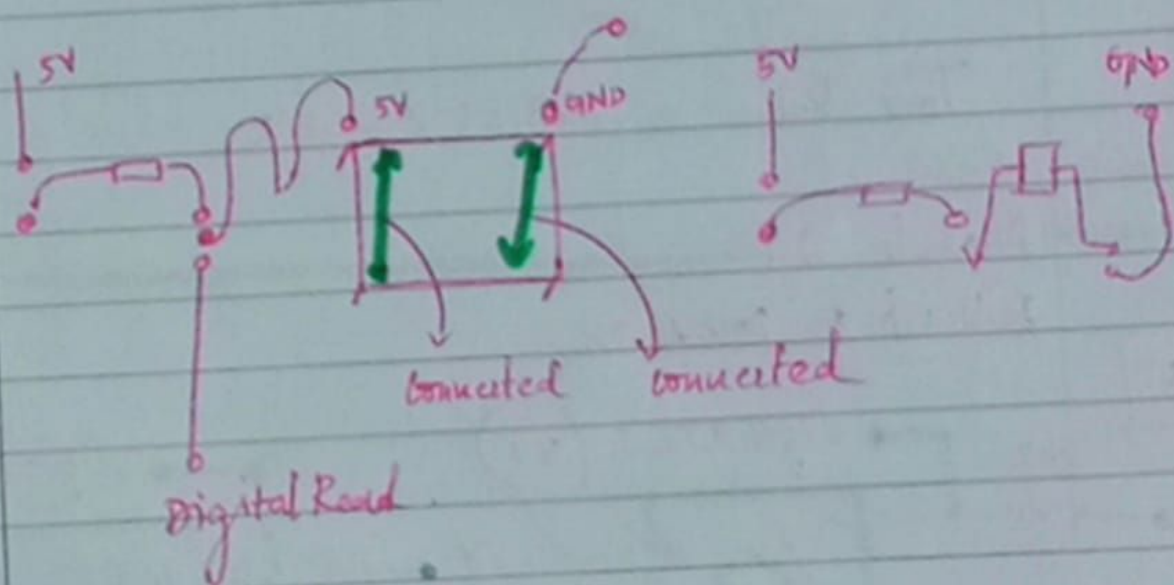 5V
5V
GND
5V
GND
Connected
Connected
Digital Read